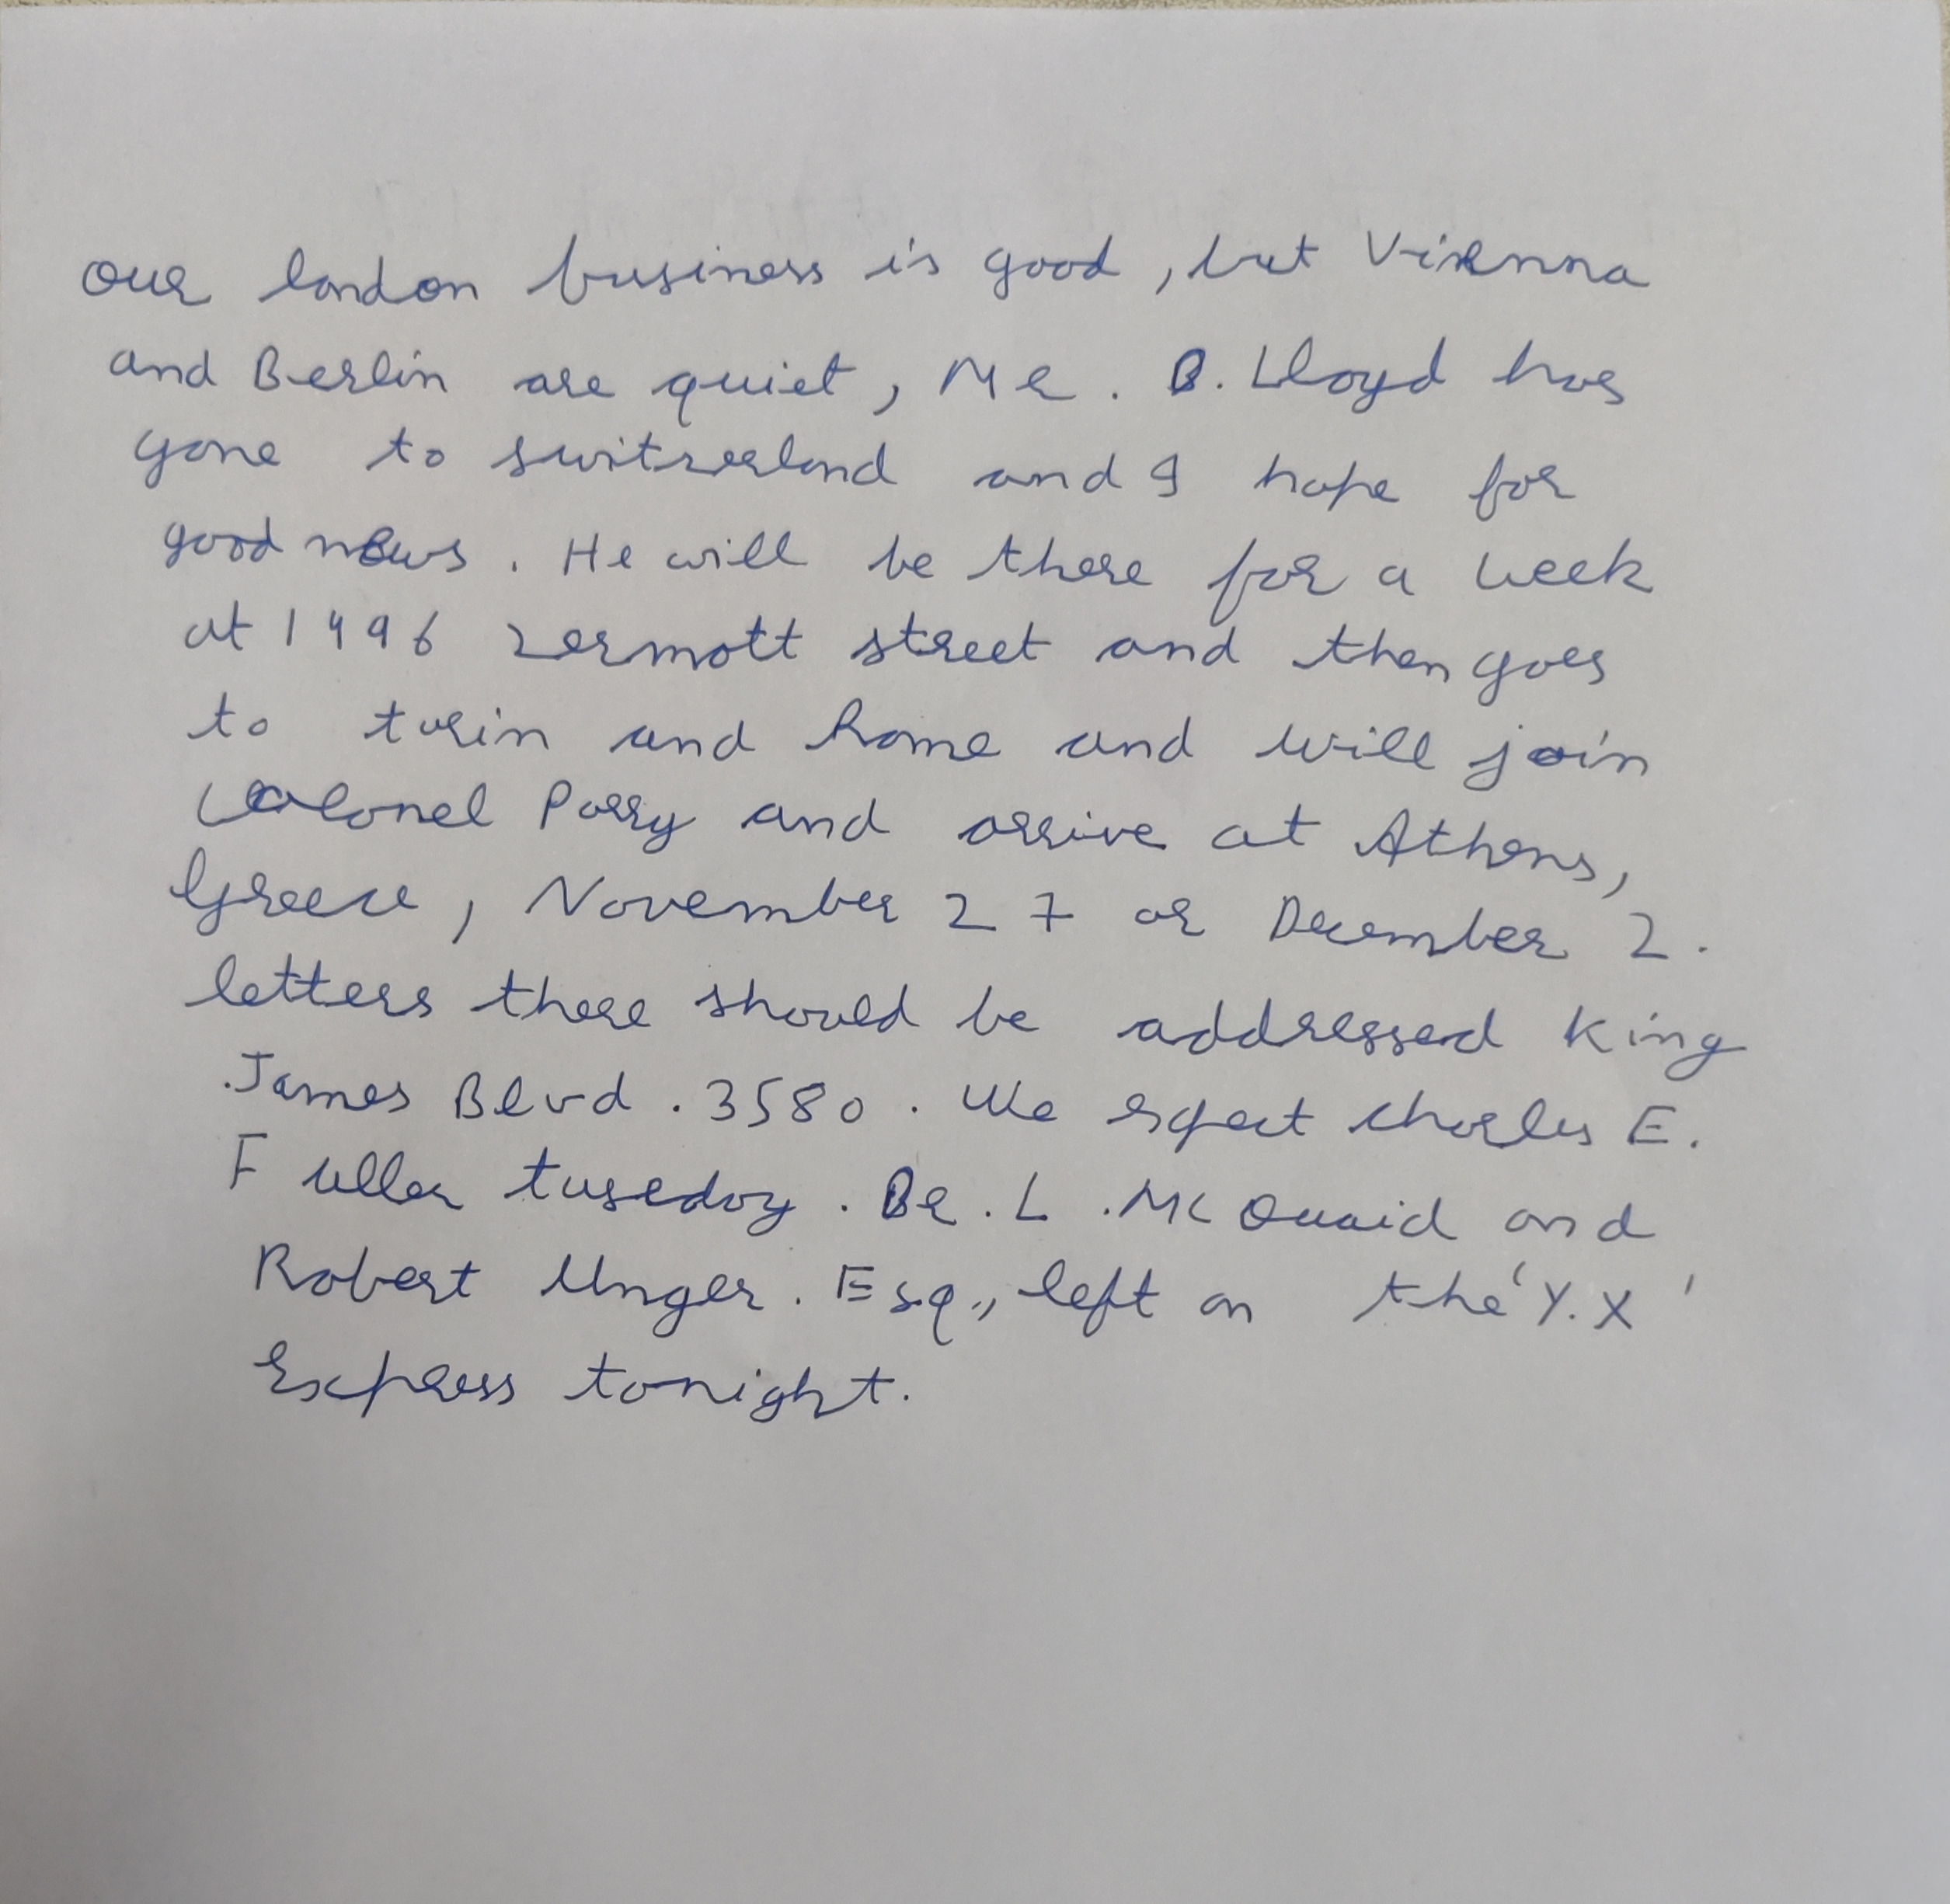 our london business is good, but Vienna
and Berlin are quiet, Mr. D. Lloyd has
gone to switzerland and I hope for
good news. He will be there for a week
at 1496 zermott street and then goes
to turin and Rome and will join
Colonel Parry and arrive at Athens,
Greece, November 27 or December 2.
letters there should be addressed King
James Blvd. 3580. We expect charles E.
Fuller tuseday. Dr. L. Mc Quaid and
Robert Unger. Esq., left on the 'Y.X'
Express tonight.